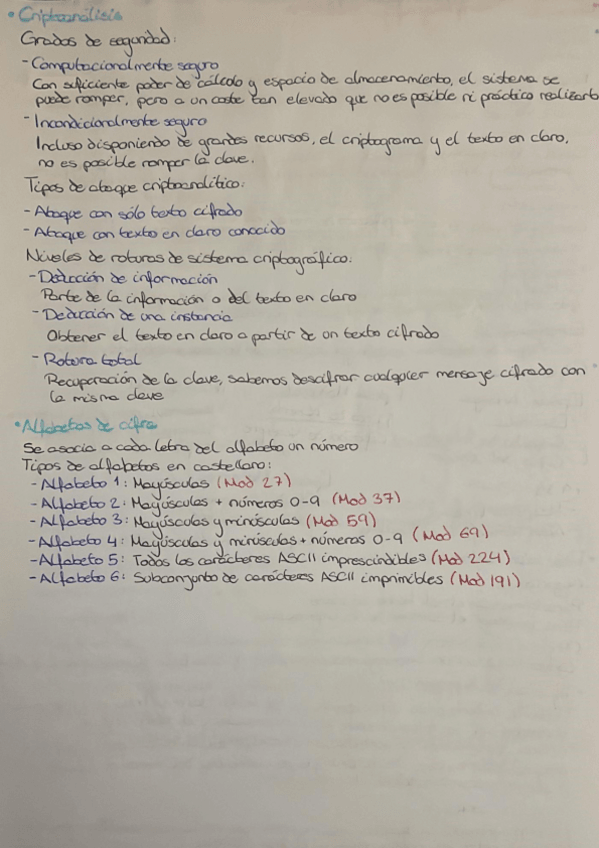 • Criptoanálisis
Grados de seguridad:
- Computacionalmente seguro
Con suficiente poder de cálculo y espacio de almacenamiento, el sistema se
puede romper, pero a un coste tan elevado que no es posible ni práctico realizarlo
- Incondicionalmente seguro
Incluso disponiendo de grandes recursos, el criptograma y el texto en claro,
no es posible romper la clave.
Tipos de ataque criptoanalítico:
- Ataque con sólo texto cifrado
- Ataque con texto en claro conocido
Niveles de roturas de sistema criptográfico:
- Deducción de información
Parte de la información o del texto en claro
- Deducción de una instancia
Obtener el texto en claro a partir de un texto cifrado
- Rotura total
Recuperación de la clave, sabemos descifrar cualquier mensaje cifrado con
la misma clave
• Alfabetos de cifra
Se asocia a cada letra del alfabeto un número
Tipos de alfabetos en castellano:
- Alfabeto 1: Mayúsculas (Mod 27)
- Alfabeto 2: Mayúsculas + números 0-9 (Mod 37)
- Alfabeto 3: Mayúsculas y minúsculas (Mod 59)
- Alfabeto 4: Mayúsculas y minúsculas + números 0-9 (Mod 69)
- Alfabeto 5: Todos los carácteres ASCII imprescindibles (Mod 224)
- Alfabeto 6: Subconjunto de carácteres ASCII imprimibles (Mod 191)